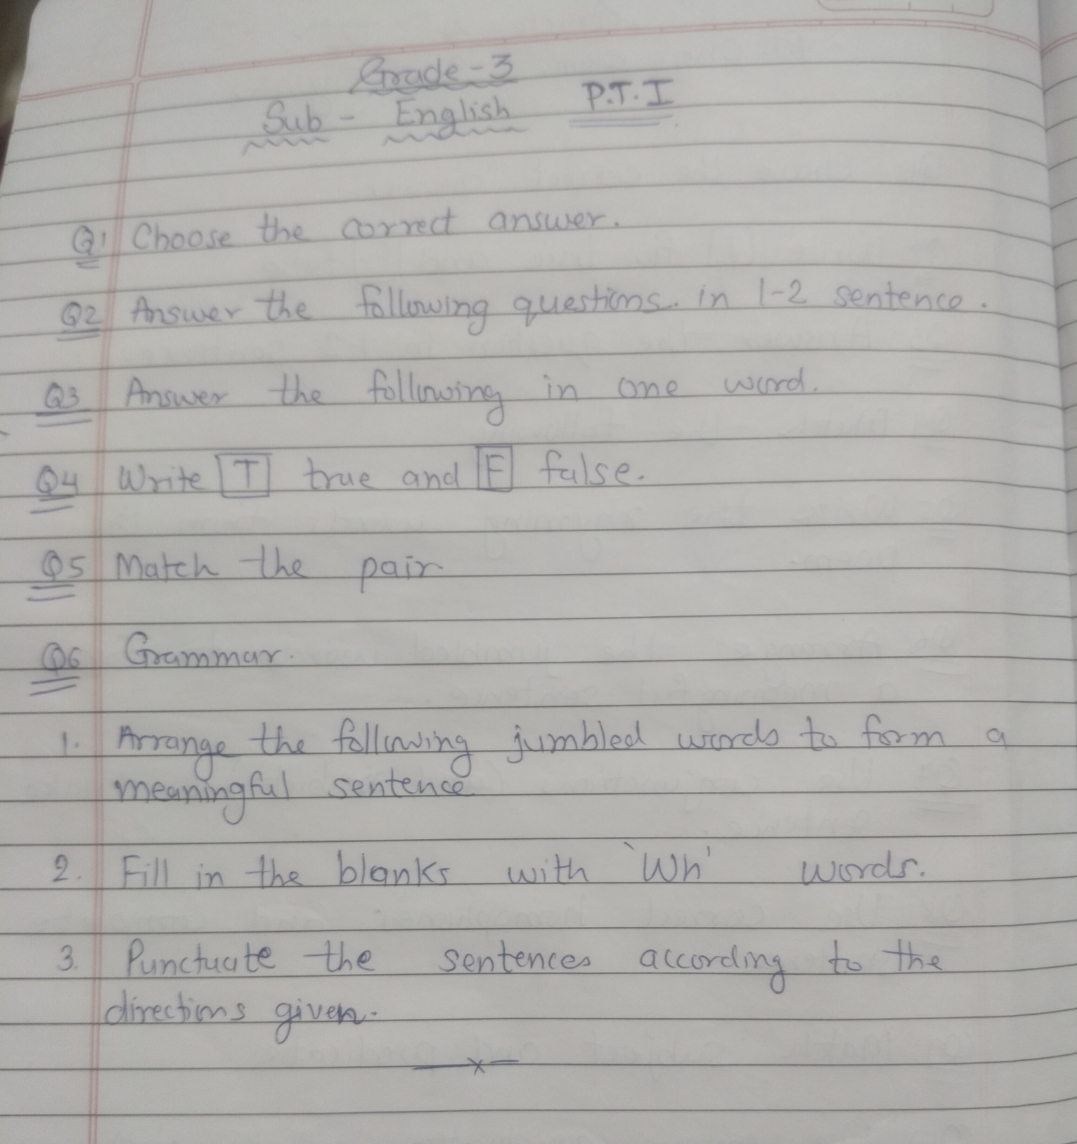 Grade-3
Sub - English P.T. I
Q1 Choose the correct answer.
Q2 Answer the following questions. in 1-2 sentence.
Q3 Answer the following in one word.
Q4 Write T true and F false.
Q5 Match the pair
Q6 Grammar.
1. Arrange the following jumbled words to form a
meaningful sentence
2. Fill in the blanks with 'Wh' words.
3. Punctuate the sentences according to the
directions given.
—x—